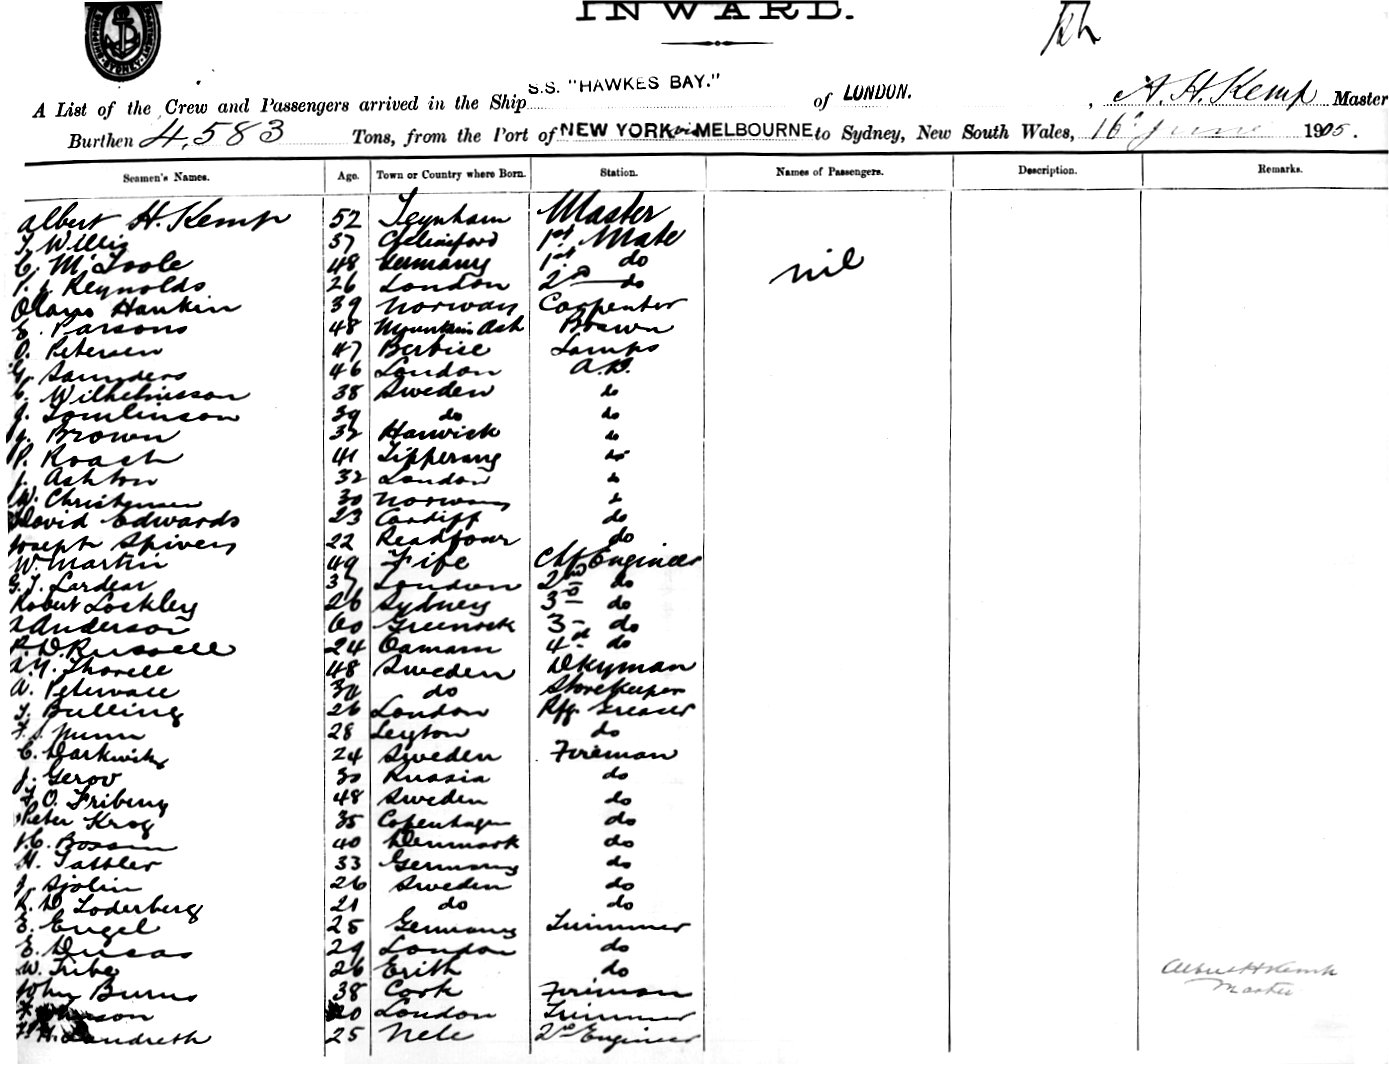 INWARD.
S.S. "HAWKES BAY."
A List of the Crew and Passengers arrived in the Ship of LONDON. , A. H. Kemp Master
Burthen 4,583 Tons, from the Port of NEW YORK via MELBOURNE to Sydney, New South Wales, 16 June 1905.
Seamen's Names. Age. Town or Country where Born. Station. Names of Passengers. Description. Remarks.
Albert H. Kemp 52 Teynham Master
T. Willis 37 Chelmsford 1st Mate
C. McToole 48 Germany 1st do
nil
Reynolds 26 London 2nd do
Hankin 39 Norway Carpenter
E. Parsons 48 Mountain Ash Boswn
O. Petersen 47 Berbice Lamps
G. Saunders 46 London A.B.
C. Wilhelmsson 38 Sweden do
J. Tomlinson 39 do do
J. Brown 32 Harwick do
P. Roach 41 Tipperary do
J. Ashton 32 London do
W. Christensen 30 Norway do
David Edwards 23 Cardiff do
Joseph Spivey 22 do
W. Martin 49 Fife Chf Engineer
G. T. Lardear 37 London 2nd do
Robert Lockley 26 Sydney 3rd do
Anderson 60 Greenock 3 do
R. D. Russell 24 Oamaru 4 do
Thorell 48 Sweden Dkyman
A. do Storekeeper
T. Bulling 26 London Rfg. Greaser
Nunn 28 Leyton do
C. 24 Sweden Fireman
J. Gerov 30 Russia do
O. Friberg 48 Sweden do
Peter Krog 35 Copenhagen do
40 Denmark do
H. Tattler 33 Germany do
J. Sjolin 26 Sweden do
Loderberg 21 do do
E. Engel 25 Germany Trimmer
E. Ducas 29 London do
W. Tribe 26 Erith do
Albert H Kemp
Master
John Burns 38 Cork Fireman
London Trimmer
H. Landreth 25 2nd Engineer